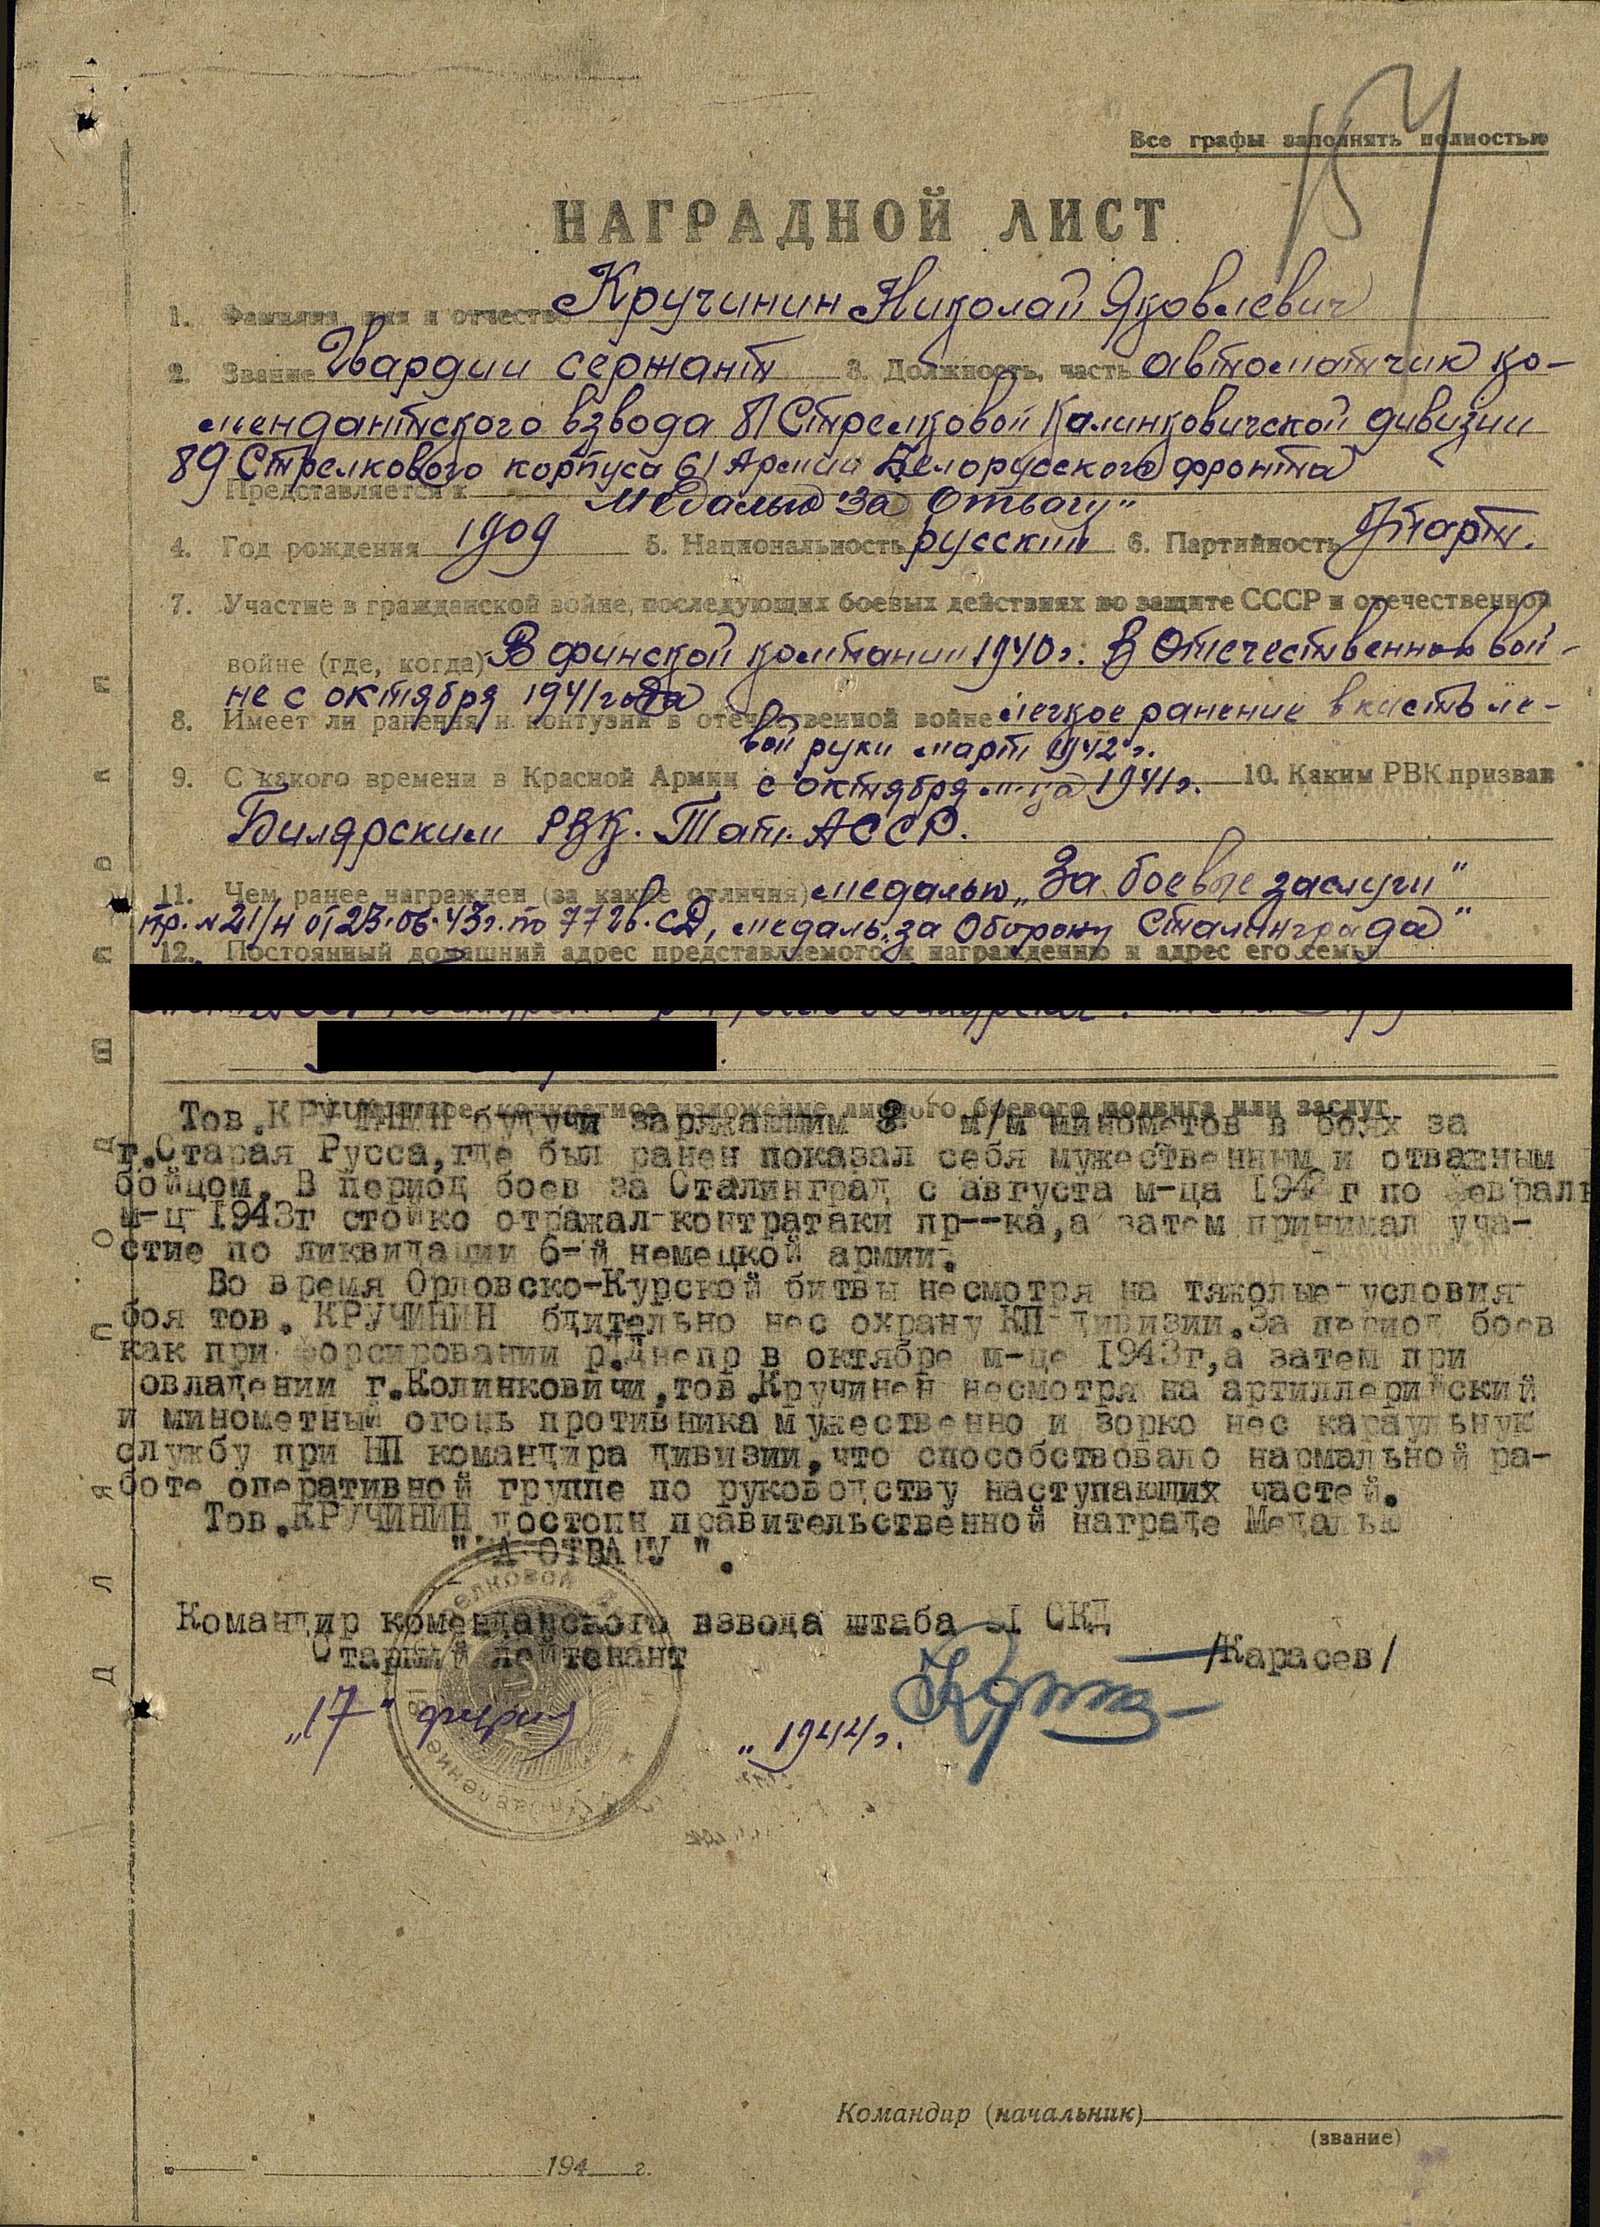 Все графы заполнять полностью
НАГРАДНОЙ ЛИСТ
1. Фамилия, имя и отчество Кручинин Николай Яковлевич
2. Звание Гвардии сержант 3. Должность, часть автоматчик ко-
мендантского взвода 81 Стрелковой Калинковичской дивизии
89 Стрелкового корпуса 61 Армии Белорусского фронта
Представляется к Медалью "За Отвагу"
4. Год рождения 1909 5. Национальность русский 6. Партийность
7. Участие в гражданской войне, последующих боевых действиях по защите СССР и отечественной
войне (где, когда) В финской компании 1940г. В Отечественной вой-
не с октября 1941 года
8. Имеет ли ранения и контузии в отечественной войне легкое ранение в кисть ле-
вой руки март 1942 г.
9. С какого времени в Красной Армии с октября м-ца 1941г. 10. Каким РВК призван
Билярским РВК. Тат. АССР.
11. Чем ранее награжден (за какие отличия) медалью „За боевые заслуги"
пр. № 21/н от 23.06.43г. по 77 гв. СД, медаль „за Оборону Сталинграда"
12. Постоянный домашний адрес представляемого к награждению и адрес его семьи
конкретное изложение личного боевого подвига или заслуг
Тов. КРУЧИНИН будучи заряжающим м/м минометов в боях за
г.Старая Русса,где был ранен показал себя мужественным и отважным
бойцом. В период боев за Сталинград с августа м-ца 1942г по февраль
м-ц 1943г стойко отражал контратаки пр--ка,а затем принимал уча-
стие по ликвидации 6-й немецкой армии.
Во время Орловско-Курской битвы несмотря на тяжолые условия
боя тов. КРУЧИНИН бдительно нес охрану КП дивизии.За период боев
как при форсировании р.Днепр в октябре м-це 1943г,а затем при
овладении г.Колинковичи,тов.Кручинен несмотря на артиллерийский
и минометный огонь противника мужественно и зорко нес караульную
службу при НП командира дивизии,что способствовало нармальной ра-
боте оперативной группе по руководству наступающих частей.
Тов.КРУЧИНИН достоин правительственной награде Медалью
"ЗА ОТВАГУ ".
Командир коменданского взвода штаба 81 СКД
Старший лейтенант /Карасев/
„17" февраля „ 1944г.
Командир (начальник)
(звание)
" " 194 г.
ДЛЯ ПОДШИВКИ